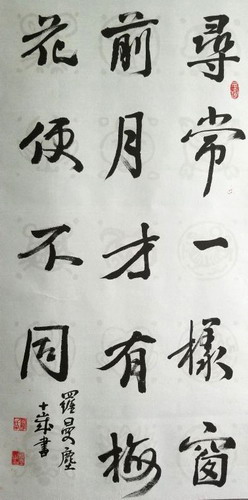 尋常一樣窗
前月才有梅
花便不同
羅曼塵
十歲書